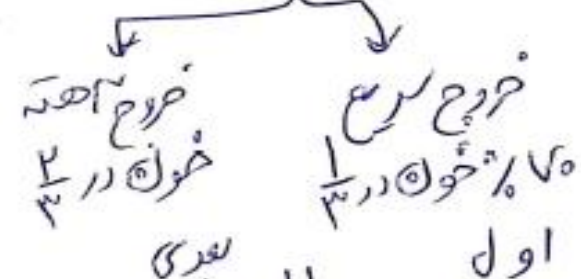 خروج سریع
۷۰٪ خون در ۱/۳
اول
خروج آهسته
خون در ۲/۳
بعدی